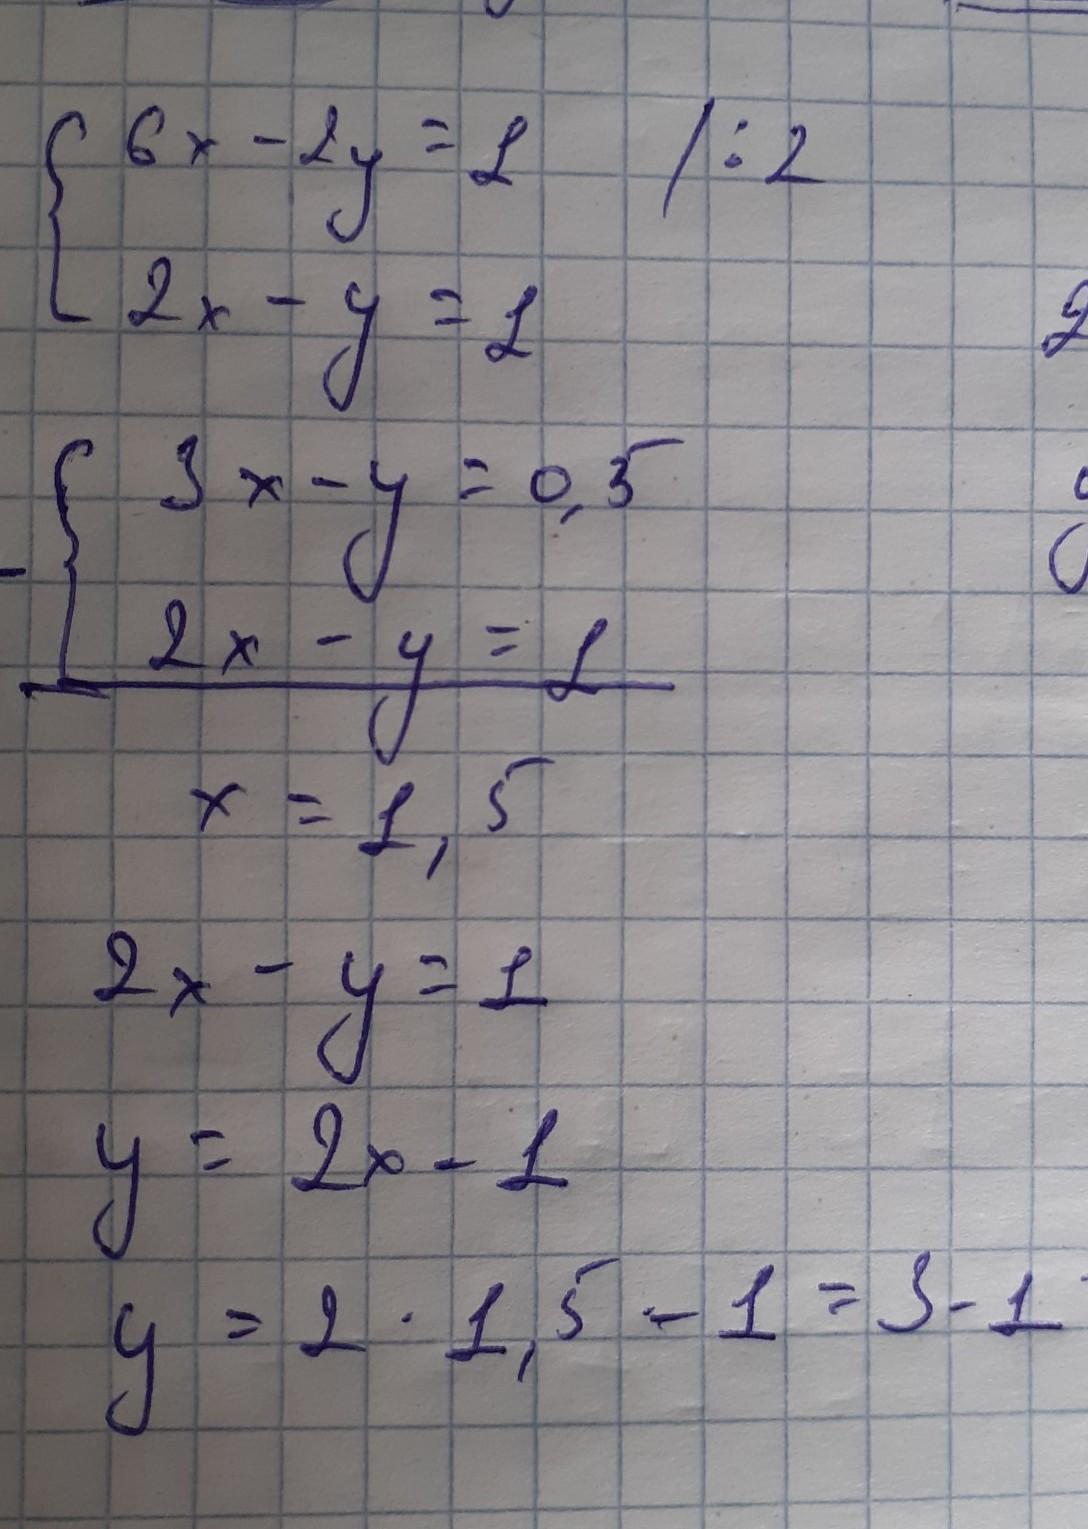 6x - 2y = 1 / : 2
2x - y = 1
3x - y = 0,5
2x - y = 1
x = 1,5
2x - y = 1
y = 2x - 1
y = 2 · 1,5 - 1 = 3 - 1